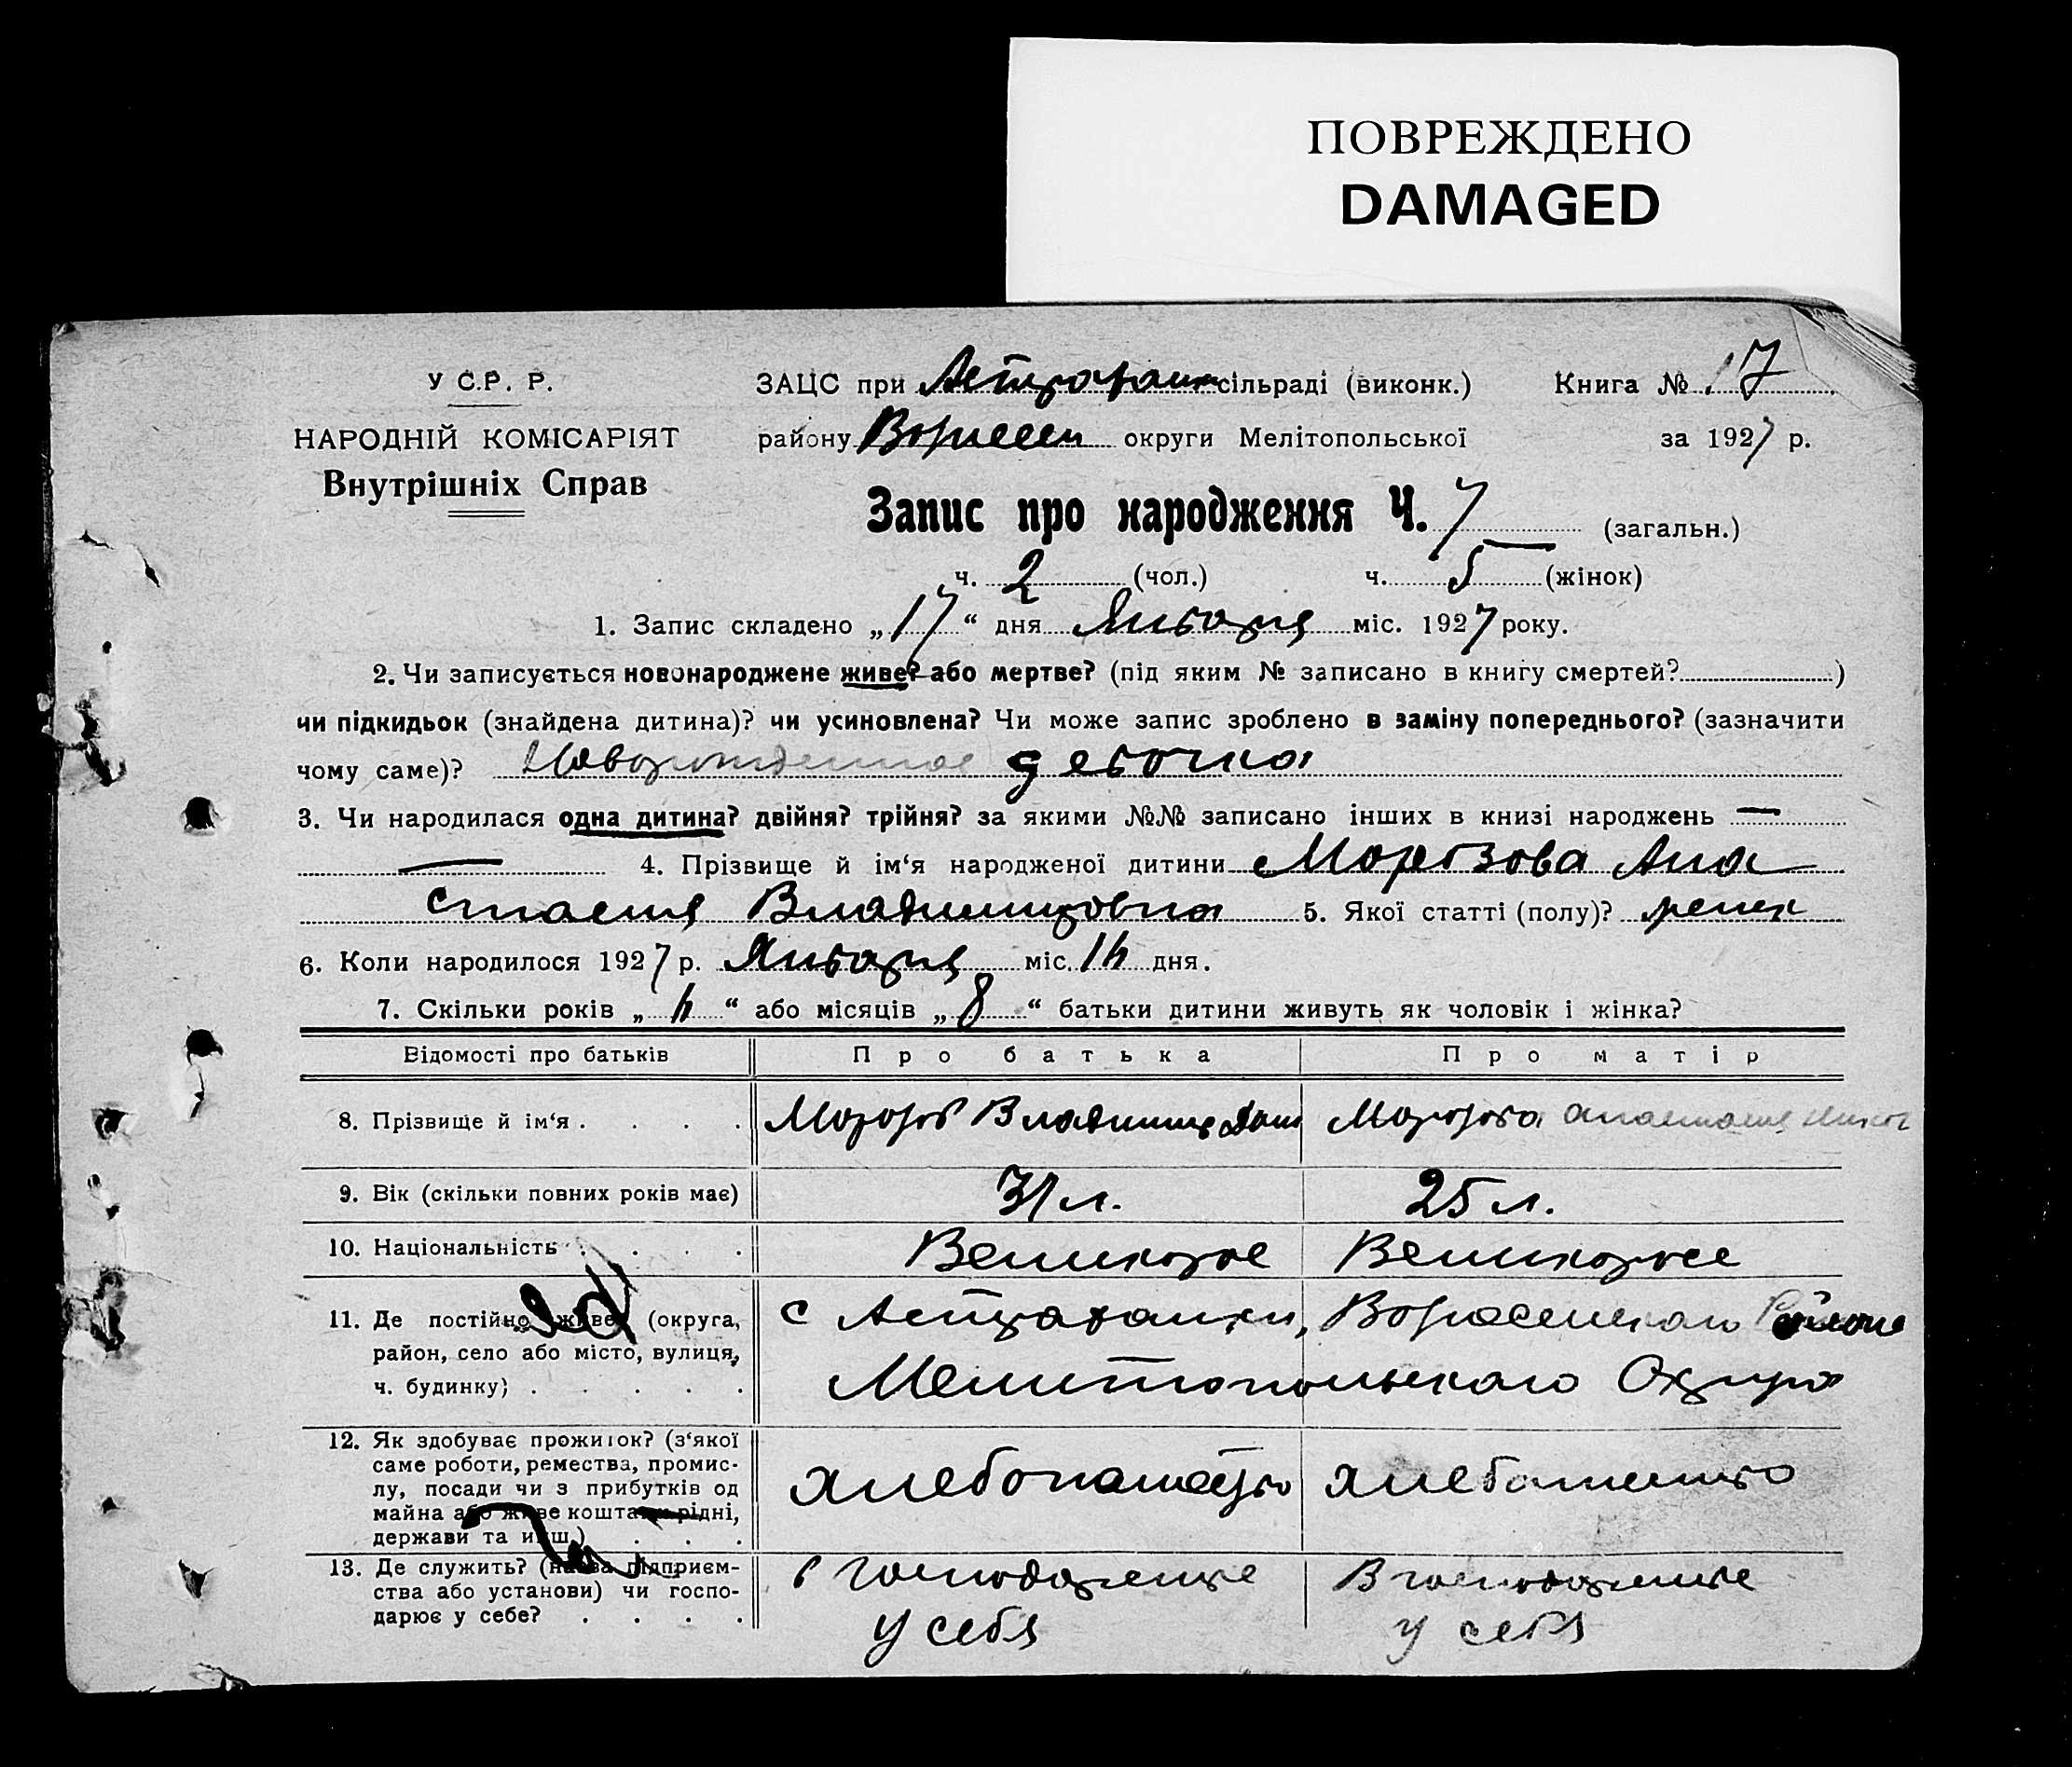 ПОВРЕЖДЕНО
DAMAGED
У С.Р. Р.
НАРОДНІЙ КОМІСАРІЯТ
Внутрішніх Справ
ЗАЦС при Астраханк сільраді (виконк.) Книга № 17
району округи Мелітопольської за 1927 р.
Запис про народження Ч. 7 (загальн.)
ч. 2 (чол.) ч. 5 (жінок)
1. Запис складено „17“ дня Января міс. 1927 року.
2. Чи записується новонароджене живе? або мертве? (під яким № записано в книгу смертей? )
чи підкидьок (знайдена дитина)? чи усиновлена? Чи може запис зроблено в заміну попереднього? (зазначити
чому саме)? Новорожденное девочка
3. Чи народилася одна дитина? двійня? трійня? за якими №№ записано інших в книзі народжень —
— 4. Прізвище й ім‘я народженої дитини Морозова Ана
стасия Владимировна 5. Якої статті (полу)? женск
6. Коли народилося 1927 р. Января міс. дня.
7. Скільки років „ “ або місяців „8“ батьки дитини живуть як чоловік і жінка?
Відомості про батьків Про батька Про матір
8. Прізвище й ім‘я . . . . Морозов Владимир Дан Морозова Анастасия
9. Вік (скільки повних років має) 31 л. 25 л.
10. Національність . . . . Великорос Великоросс
11. Де постійно живе (округа,
район, село або місто, вулиця,
ч. будинку) . . . . .
с Астраханки, Района
Мелитопольскаго Округа
12. Як здобуває прожиток? (з‘якої
саме роботи, ремества, промис-
лу, посади чи з прибутків од
майна або живе коштами рідні,
держави та инш.) . . .
13. Де служить? (назва підприєм-
ства або установи) чи госпо-
дарює у себе? . . . .
у себя у себя